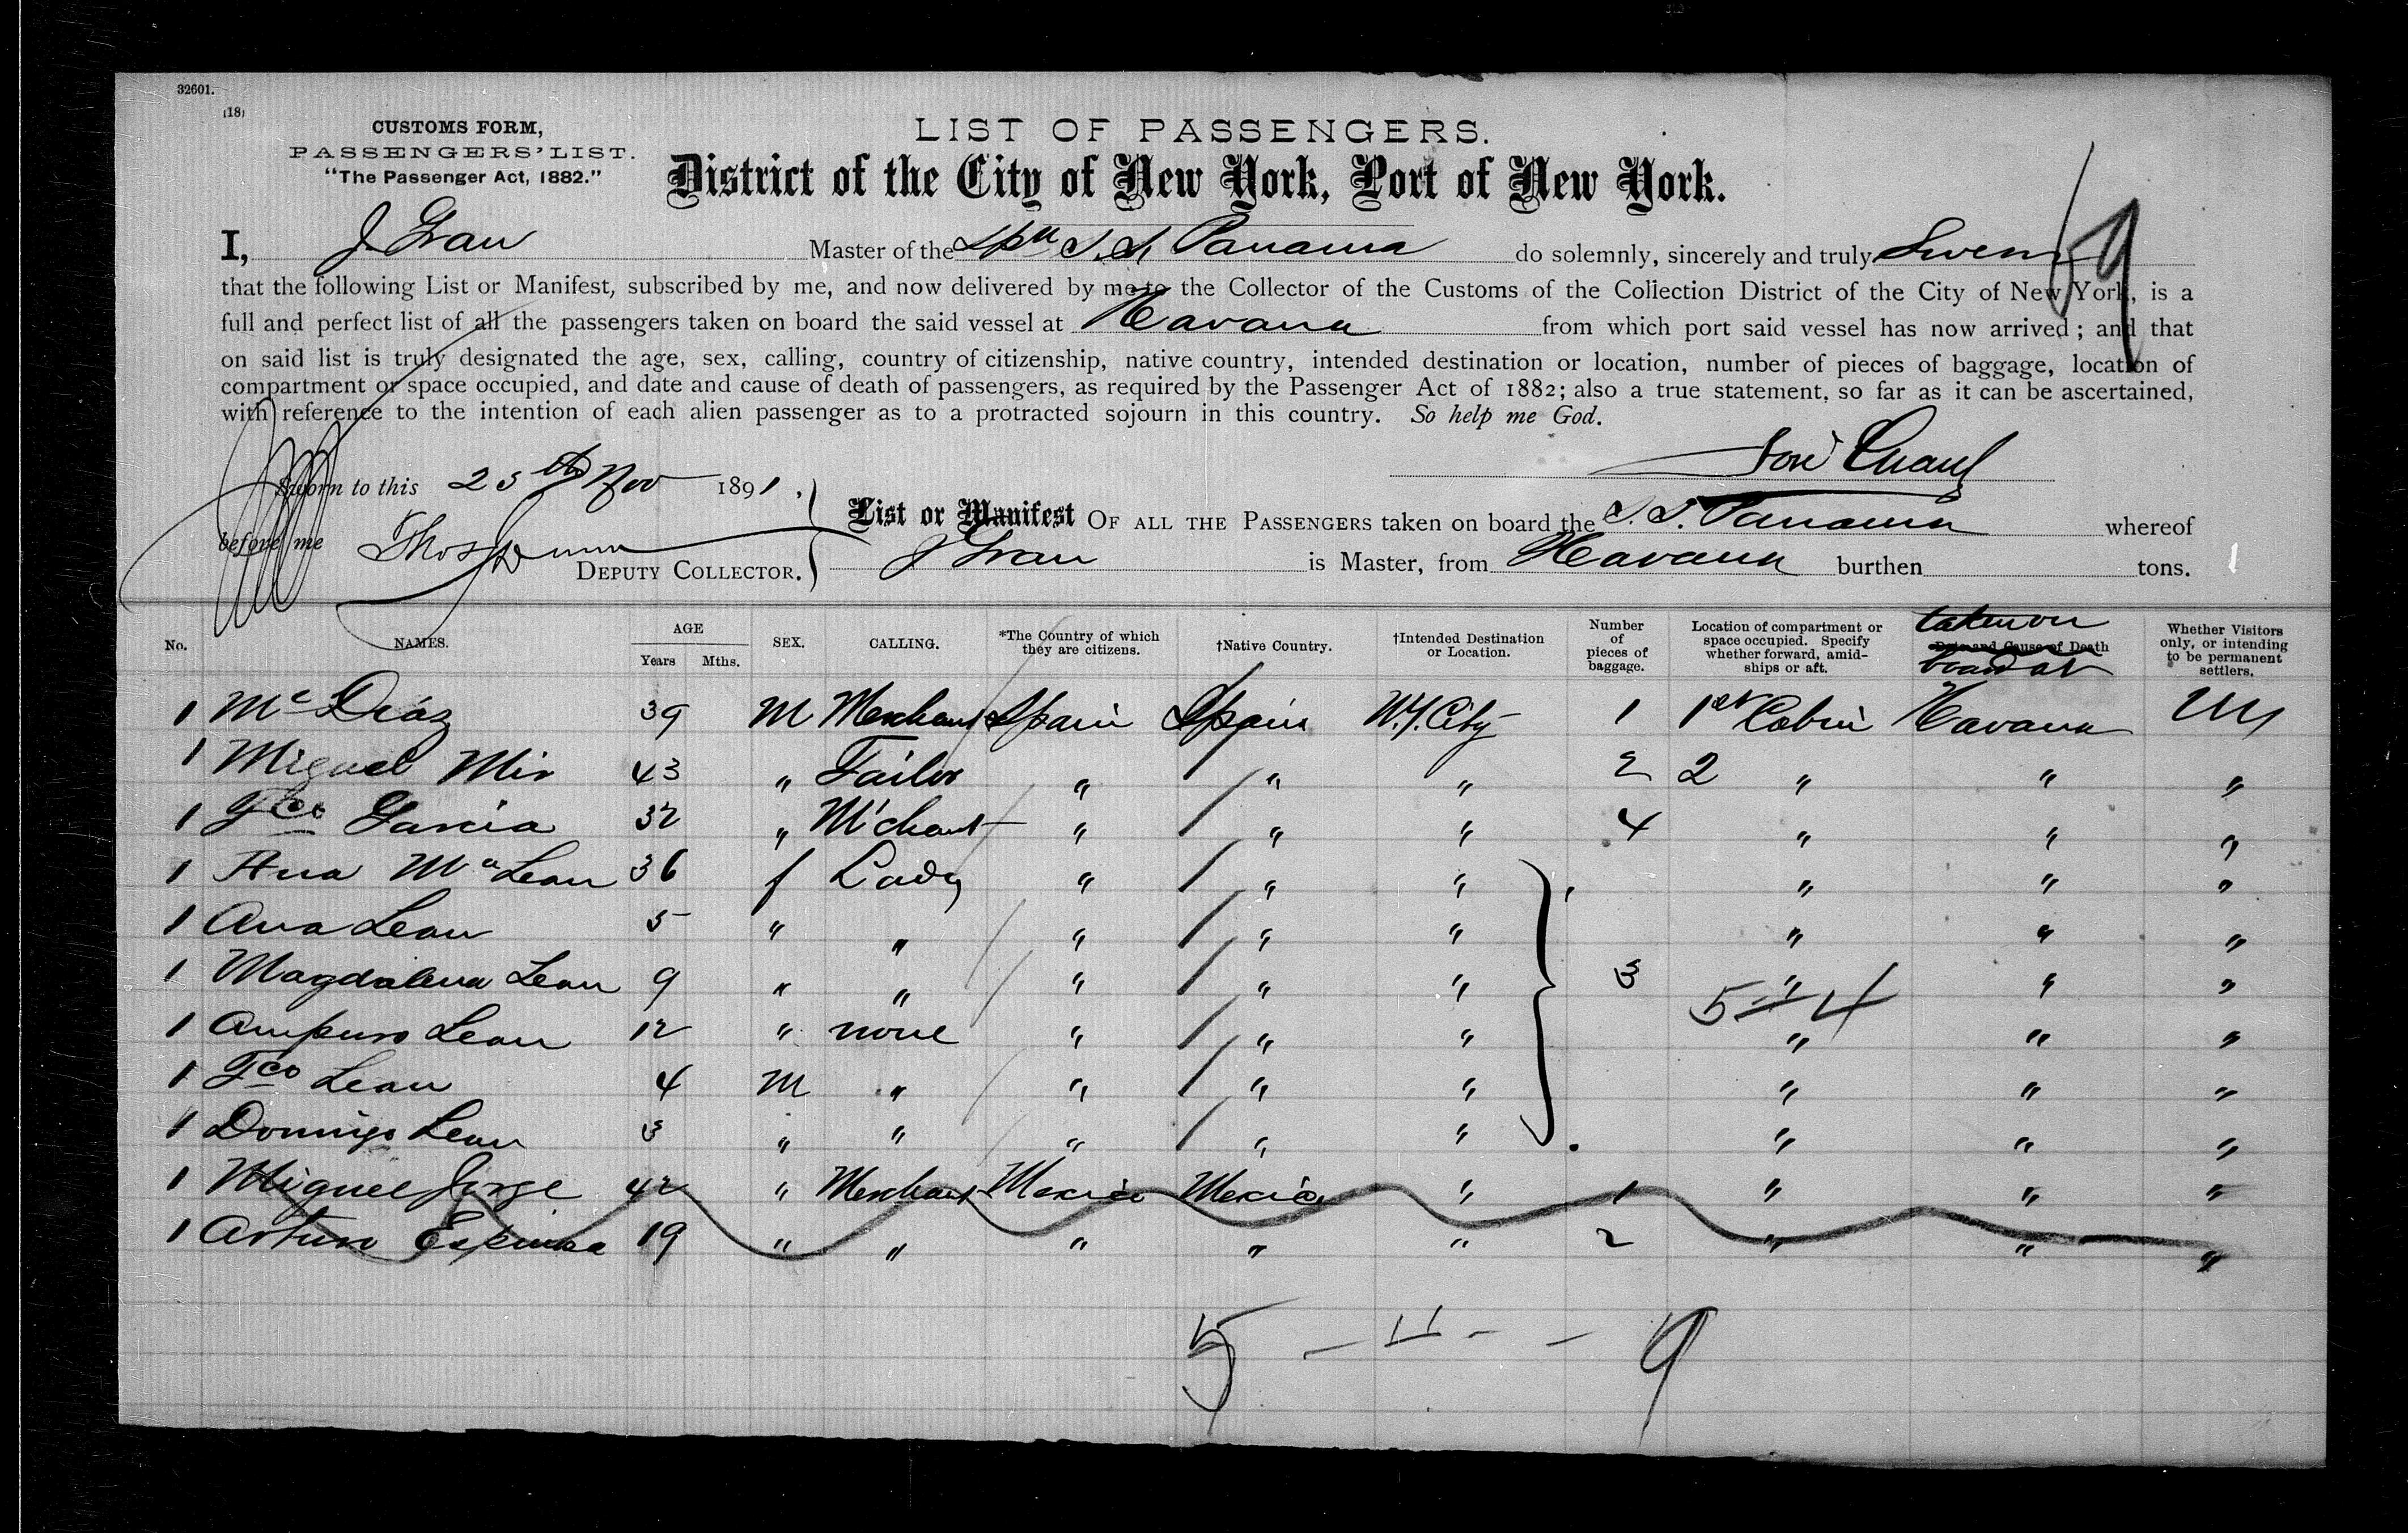 32601.
(18)
CUSTOMS FORM,
PASSENGERS' LIST.
"The Passenger Act, 1882."
LIST OF PASSENGERS.
District of the City of New York, Port of New York.
I, J Grau Master of the Spn S.S. Panama do solemnly, sincerely and truly Swear
that the following List or Manifest, subscribed by me, and now delivered by me to the Collector of the Customs of the Collection District of the City of New York, is a
full and perfect list of all the passengers taken on board the said vessel at Havana from which port said vessel has now arrived; and that
on said list is truly designated the age, sex, calling, country of citizenship, native country, intended destination or location, number of pieces of baggage, location of
compartment or space occupied, and date and cause of death of passengers, as required by the Passenger Act of 1882; also a true statement, so far as it can be ascertained,
with reference to the intention of each alien passenger as to a protracted sojourn in this country. So help me God.
Sworn to this 25th Nov 1891.
before me Thos Dunn
DEPUTY COLLECTOR.
List or Manifest OF ALL THE PASSENGERS taken on board the S.S. Panama whereof
J Grau is Master, from Havana burthen tons.
No. NAMES. AGE Years Mths. SEX. CALLING. *The Country of which they are citizens. †Native Country. †Intended Destination or Location. Number of pieces of baggage. Location of compartment or space occupied. Specify whether forward, amidships or aft. taken on board at Date and Cause of Death Whether Visitors only, or intending to be permanent settlers.
1 Mc Diaz 39 M Merchant Spain Spain N.Y. City 1 1st Cabin Havana
1 Miguel Mir 43 " Tailor " " " 2 2 " " "
1 Fco Garcia 32 " M'chant " " " 4 " " "
1 Ana Ma Leon 36 f Lady " " " " " "
1 Ana Leon 5 " " " " " " " "
1 Magdalena Leon 9 " " " " " 3 " " "
5 11 4
1 Amparo Leon 12 " none " " " " " "
1 Fco Leon 4 M " " " " " " "
1 Domingo Leon 3 " " " " " " " "
1 Miguel Jorge 42 " Merchant Mexico Mexico " 1 " " "
1 Arturo Espinosa 19 " " " " " 2 " " "
5 - 11 - - 9